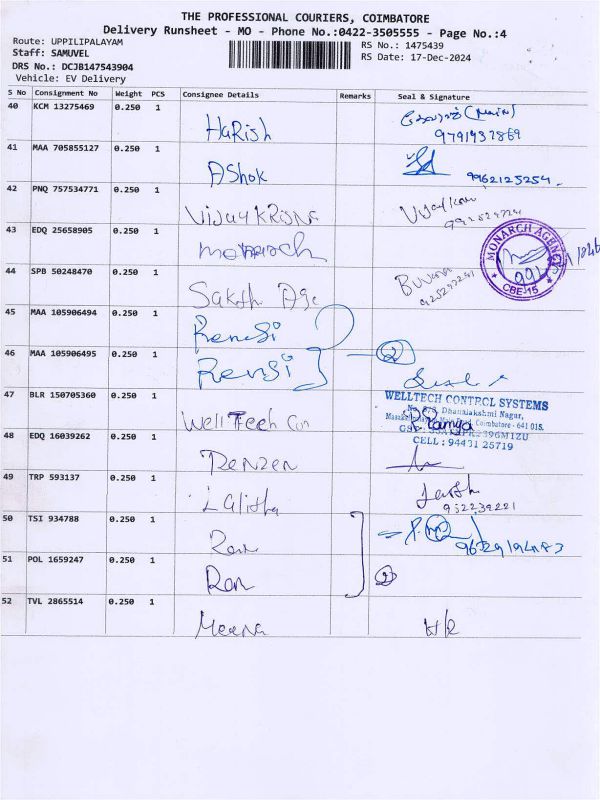 THE PROFESSIONAL COURIERS, COIMBATORE
Delivery Runsheet - MO - Phone No.:0422-3505555 - Page No.:4
Route: UPPILIPALAYAM
RS No.: 1475439
Staff: SAMUVEL
RS Date: 17-Dec-2024
DRS No.: DCJB147543904
Vehicle: EV Delivery
S No Consignment No Weight PCS Consignee Details Remarks Seal & Signature
40 KCM 13275469 0.250 1
HaRish
9791937869
41 MAA 705855127 0.250 1
AShok
9962125254
42 PNQ 757534771 0.250 1
43 EDQ 25658905 0.250 1
MONARCH AGENCY
CBE-15
44 SPB 50248470 0.250 1
45 MAA 105906494 0.250 1
Rensi
46 MAA 105906495 0.250 1
Rensi
2
47 BLR 150705360 0.250 1
Well Tech Con
WELLTECH CONTROL SYSTEMS
Dhanalakshmi Nagar,
Coimbatore - 641 015.
CELL : 94431 25719
48 EDQ 16039262 0.250 1
49 TRP 593137 0.250 1
Lalitha
50 TSI 934788 0.250 1
51 POL 1659247 0.250 1
Ram
2
52 TVL 2865514 0.250 1
Meena